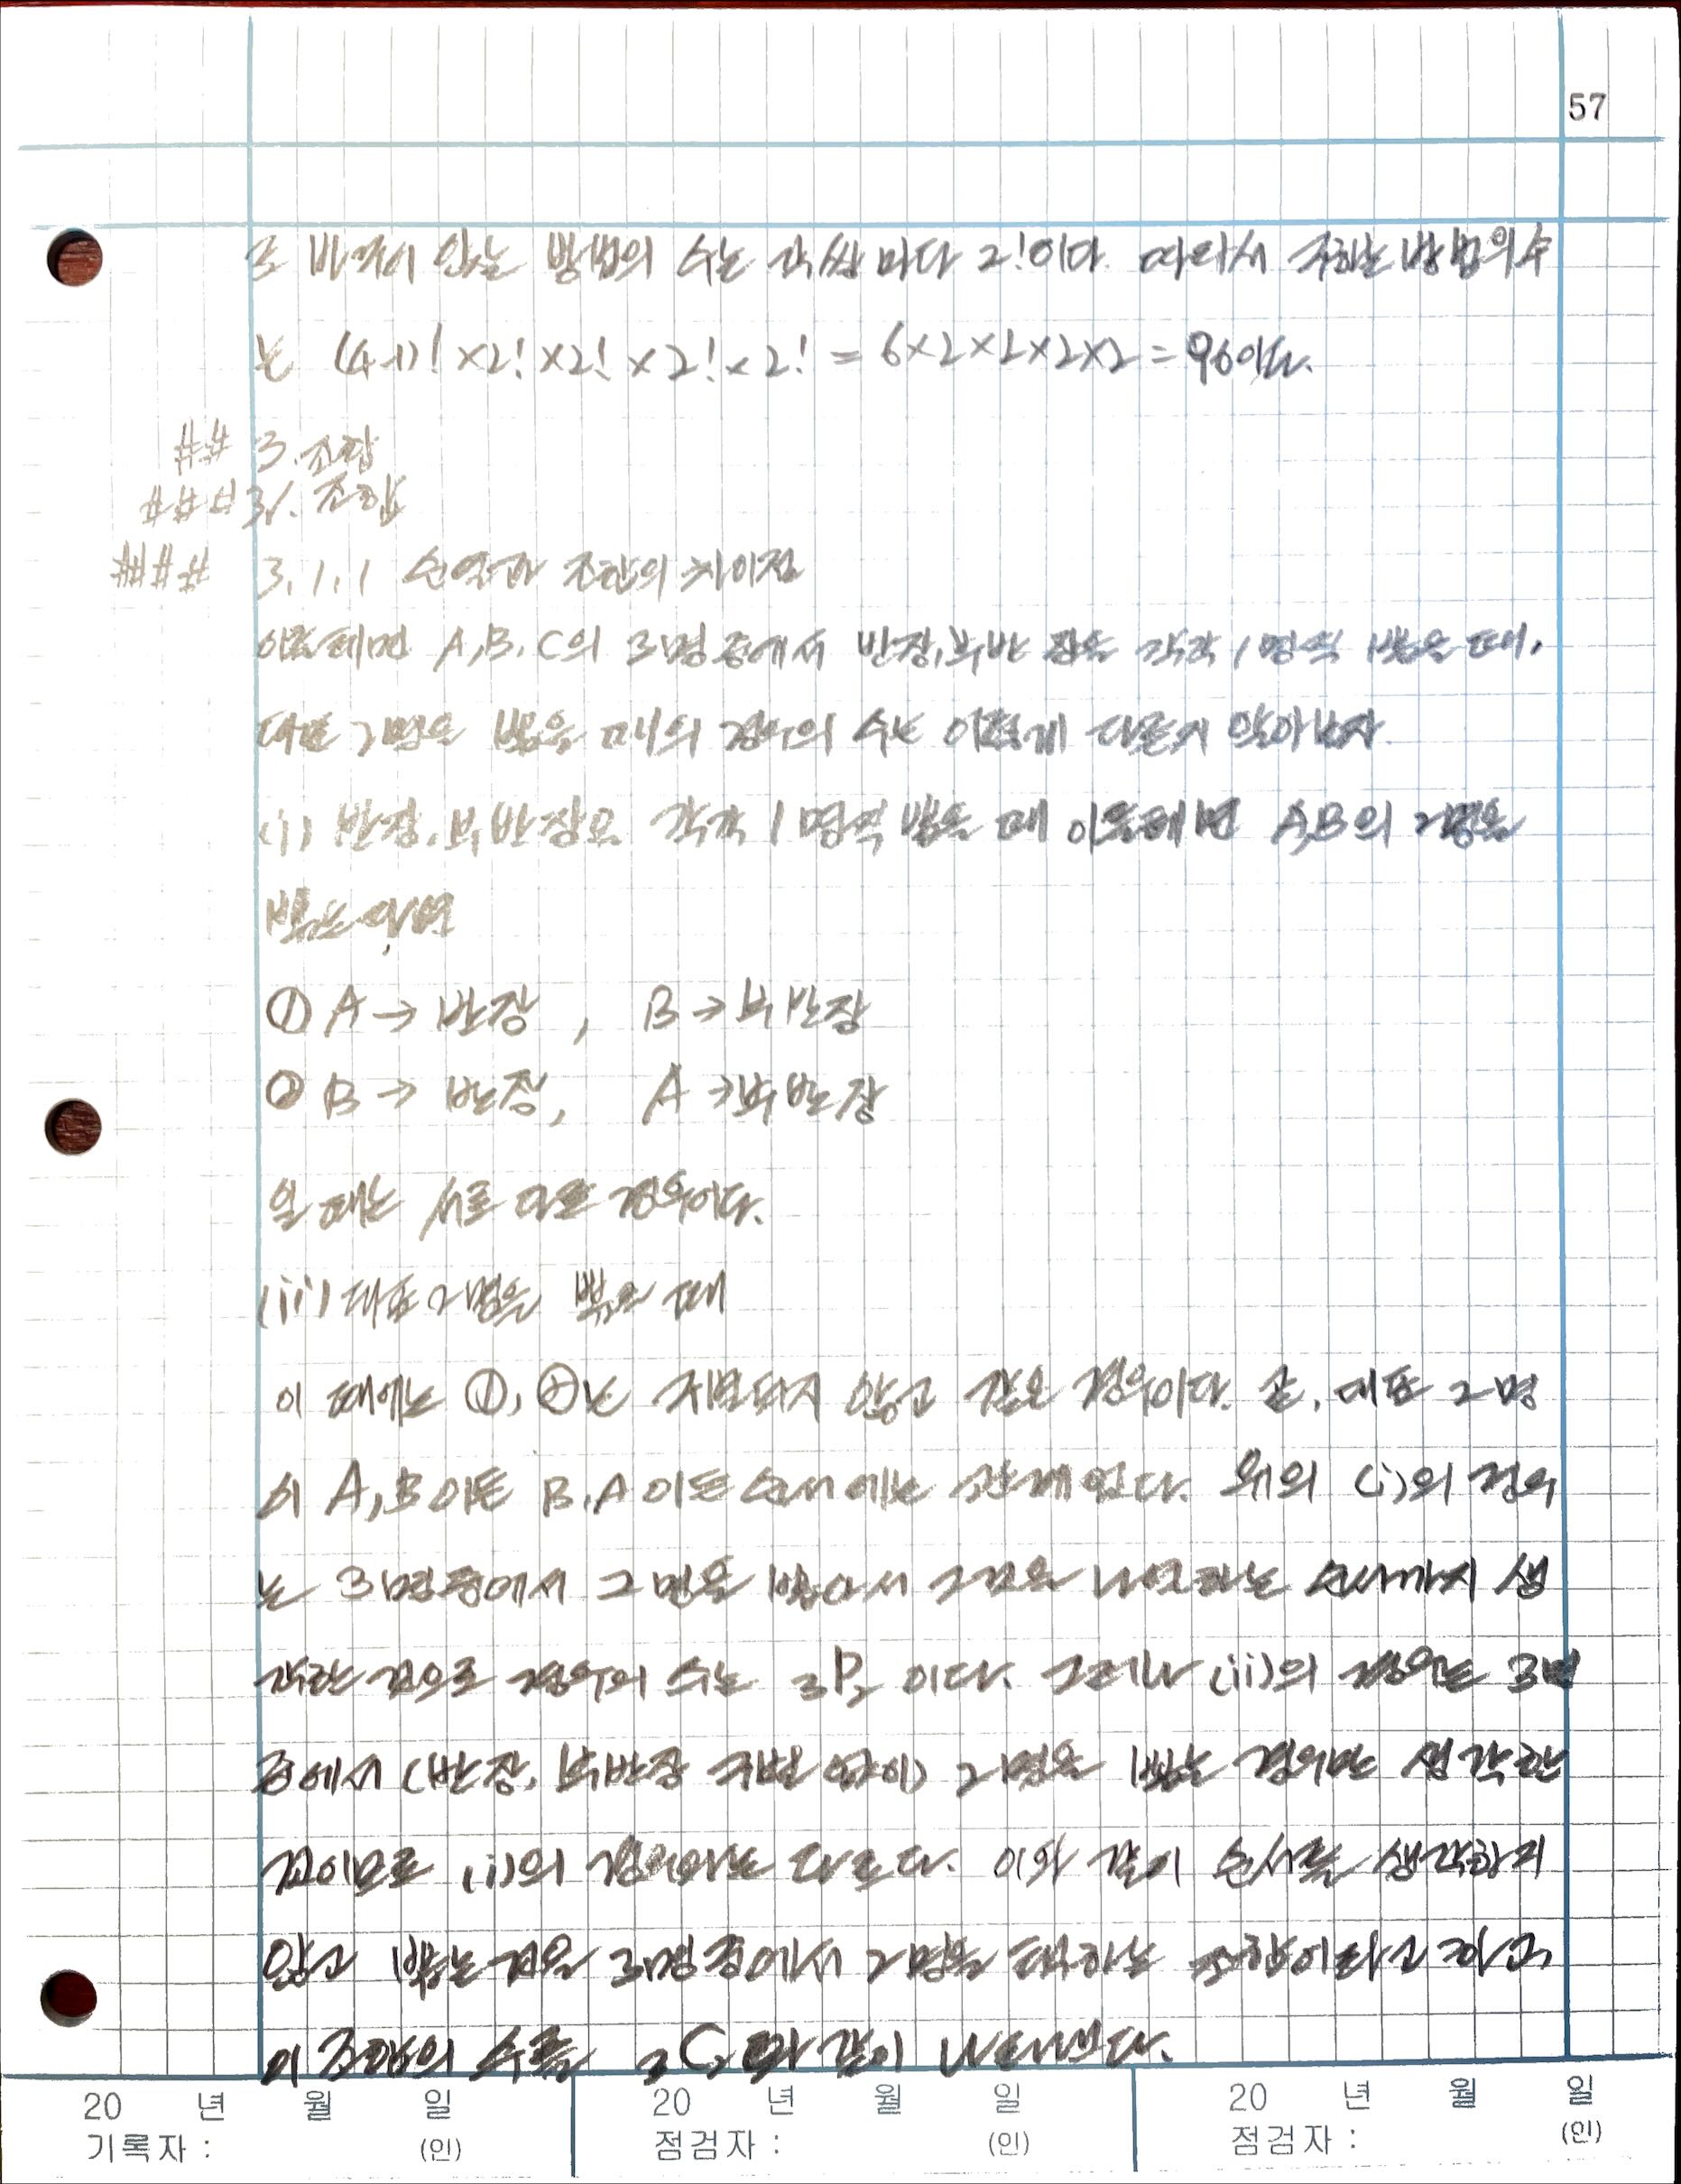 57
로 바꾸어 앉는 방법의 수는 각 쌍마다 2!이다. 따라서 구하는 방법의 수
는 (4-1)! ×2! ×2! × 2! × 2! = 6×2×2×2×2 = 96이다.
## 3. 조합
### 3.1. 조합
#### 3.1.1 순열과 조합의 차이점
이를테면 A,B,C의 3명 중에서 반장,부반장을 각각 1명씩 뽑을 때,
대표 2명을 뽑을 때의 경우의 수는 어떻게 다른지 알아보자.
(i) 반장,부반장으로 각각 1명씩 뽑을 때 이를테면 A,B의 2명을
뽑는다면
① A → 반장 , B → 부반장
② B → 반장, A → 부반장
일 때는 서로 다른 경우이다.
(ii) 대표 2명을 뽑을 때
이 때에는 ①, ②는 구별되지 않고 같은 경우이다. 곧, 대표 2명
이 A,B이든 B,A이든 순서에는 관계없다. 위의 (i)의 경우
는 3명중에서 2명을 뽑아서 그것을 나열하는 순서까지 생
각한 것으로 경우의 수는 ₃P₂ 이다. 그러나 (ii)의 경우는 3명
중에서 (반장, 부반장 구별 없이) 2명을 뽑는 경우만 생각한
것이므로 (i)의 경우와는 다르다. 이와 같이 순서를 생각하지
않고 뽑는 것을 3명 중에서 2명을 택하는 조합이라고 하고,
이 조합의 수를 ₃C₂와 같이 나타낸다.
20 년 월 일 20 년 월 일 20 년 월 일
기록자 : (인) 점검자 : (인) 점검자 : (인)